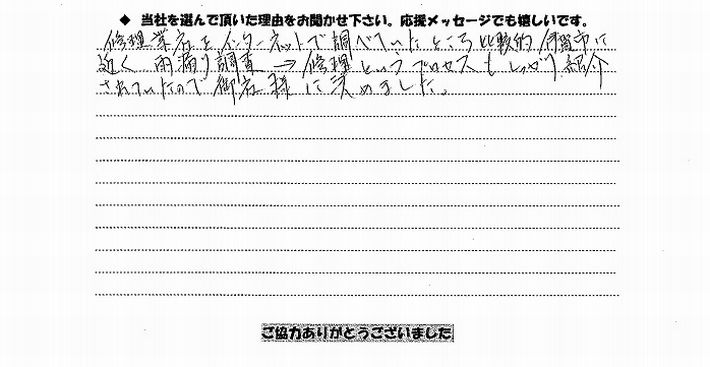 ◆ 当社を選んで頂いた理由をお聞かせ下さい。応援メッセージでも嬉しいです。
修理業者をインターネットで調べていたところ比較的 伊賀市に
近く 雨漏り調査 → 修理 というプロセスもしっかり紹介
されていたので御社様に決めました。
ご協力ありがとうございました